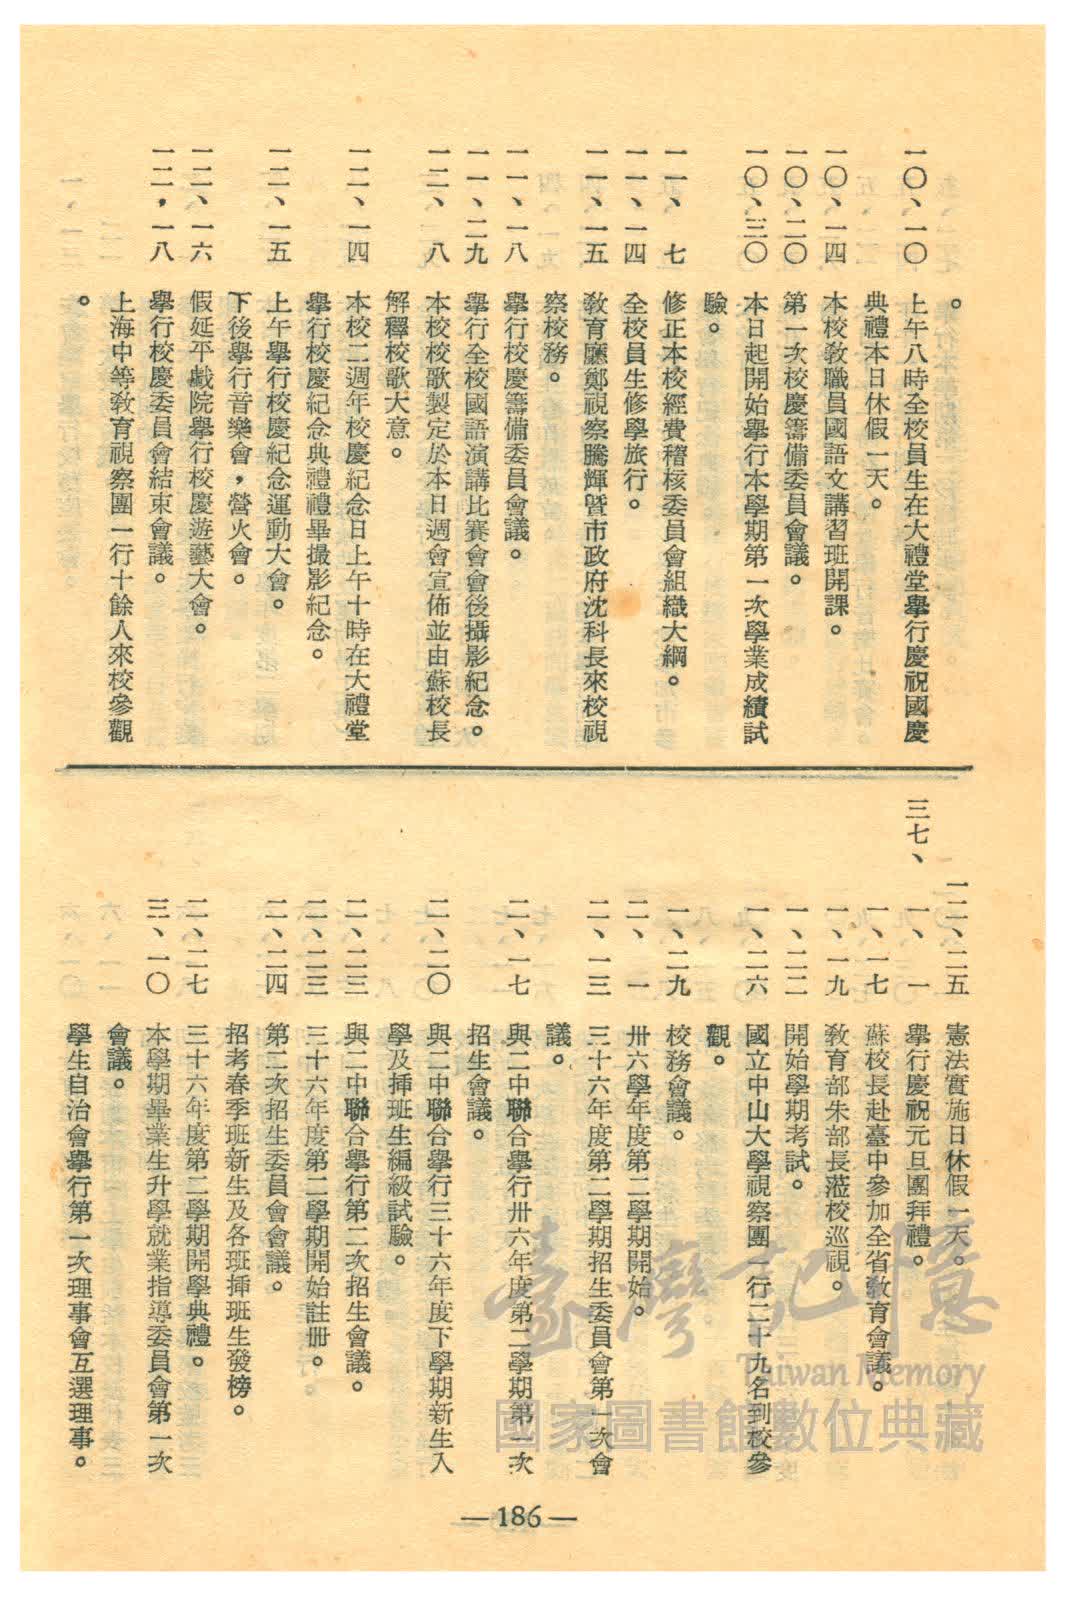 。
一〇、一〇　上午八時全校員生在大禮堂舉行慶祝國慶
典禮本日休假一天。
一〇、一四　本校敎職員國語文講習班開課。
一〇、二〇　第一次校慶籌備委員會議。
一〇、三〇　本日起開始舉行本學期第一次學業成績試
驗。
一一、　七　修正本校經費稽核委員會組織大綱。
一一、一四　全校員生修學旅行。
一一、一五　敎育廳鄭視察騰輝曁市政府沈科長來校視
察校務。
一一、一八　舉行校慶籌備委員會議。
一一、二九　舉行全校國語演講比賽會會後攝影紀念。
一二、　八　本校校歌製定於本日週會宣佈並由蘇校長
解釋校歌大意。
一二、一四　本校二週年校慶紀念日上午十時在大禮堂
舉行校慶紀念典禮禮畢撮影紀念。
一二、一五　上午舉行校慶紀念運動大會。
下後舉行音樂會，營火會。
一二、一六　假延平戲院舉行校慶遊藝大會。
一二，一八　舉行校慶委員會結束會議。
上海中等敎育視察團一行十餘人來校參觀
。
一二、二五　憲法實施日休假一天。
三七、　一、　一　舉行慶祝元旦團拜禮。
一、一七　蘇校長赴臺中參加全省敎育會議。
一、一九　敎育部朱部長蒞校巡視。
一、二二　開始學期考試。
一、二六　國立中山大學視察團一行二十九名到校參
觀。
一、二九　校務會議。
二、　一　卅六學年度第二學期開始。
二、一三　三十六年度第二學期招生委員會第一次會
議。
二、一七　與二中聯合舉行卅六年度第二學期第一次
招生會議。
二、二〇　與二中聯合舉行三十六年度下學期新生入
學及揷班生編級試驗。
二、二三　與二中聯合舉行第二次招生會議。
二、二三　三十六年度第二學期開始註册。
二、二四　第二次招生委員會會議。
招考春季班新生及各班揷班生發榜。
二、二七　三十六年度第二學期開學典禮。
三、一〇　本學期畢業生升學就業指導委員會第一次
會議。
學生自治會舉行第一次理事會互選理事。
—186—
臺灣記憶
Taiwan Memory
國家圖書館數位典藏